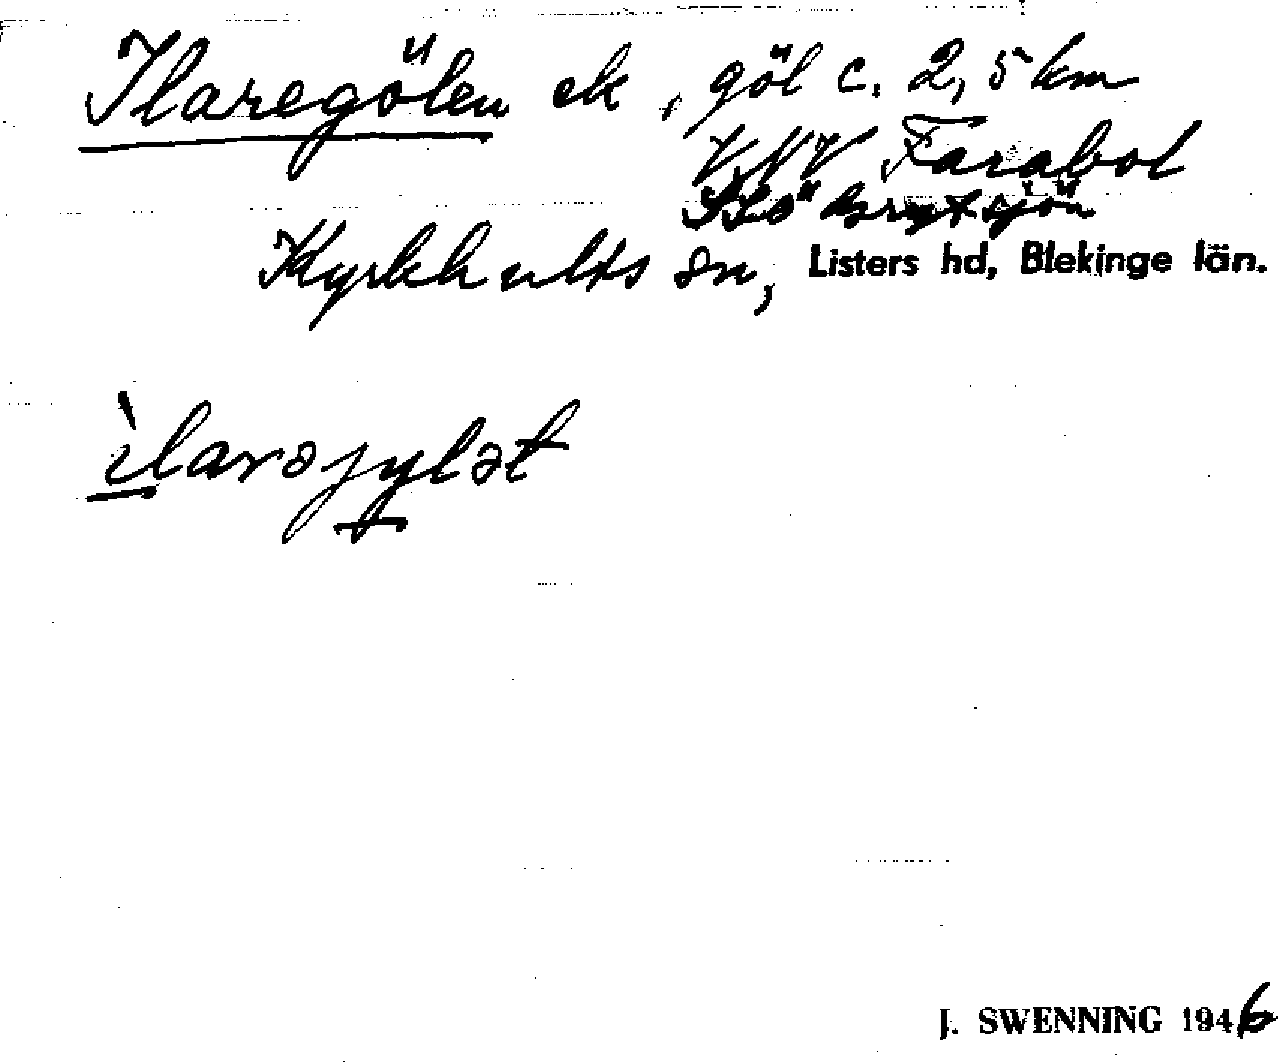 Ilaregölen ek, göl c. 2,5 km
V.NV Farabol
Kyrkhults sn, Listers hd, Blekinge län.
ilarəjylət
J. SWENNING 1946